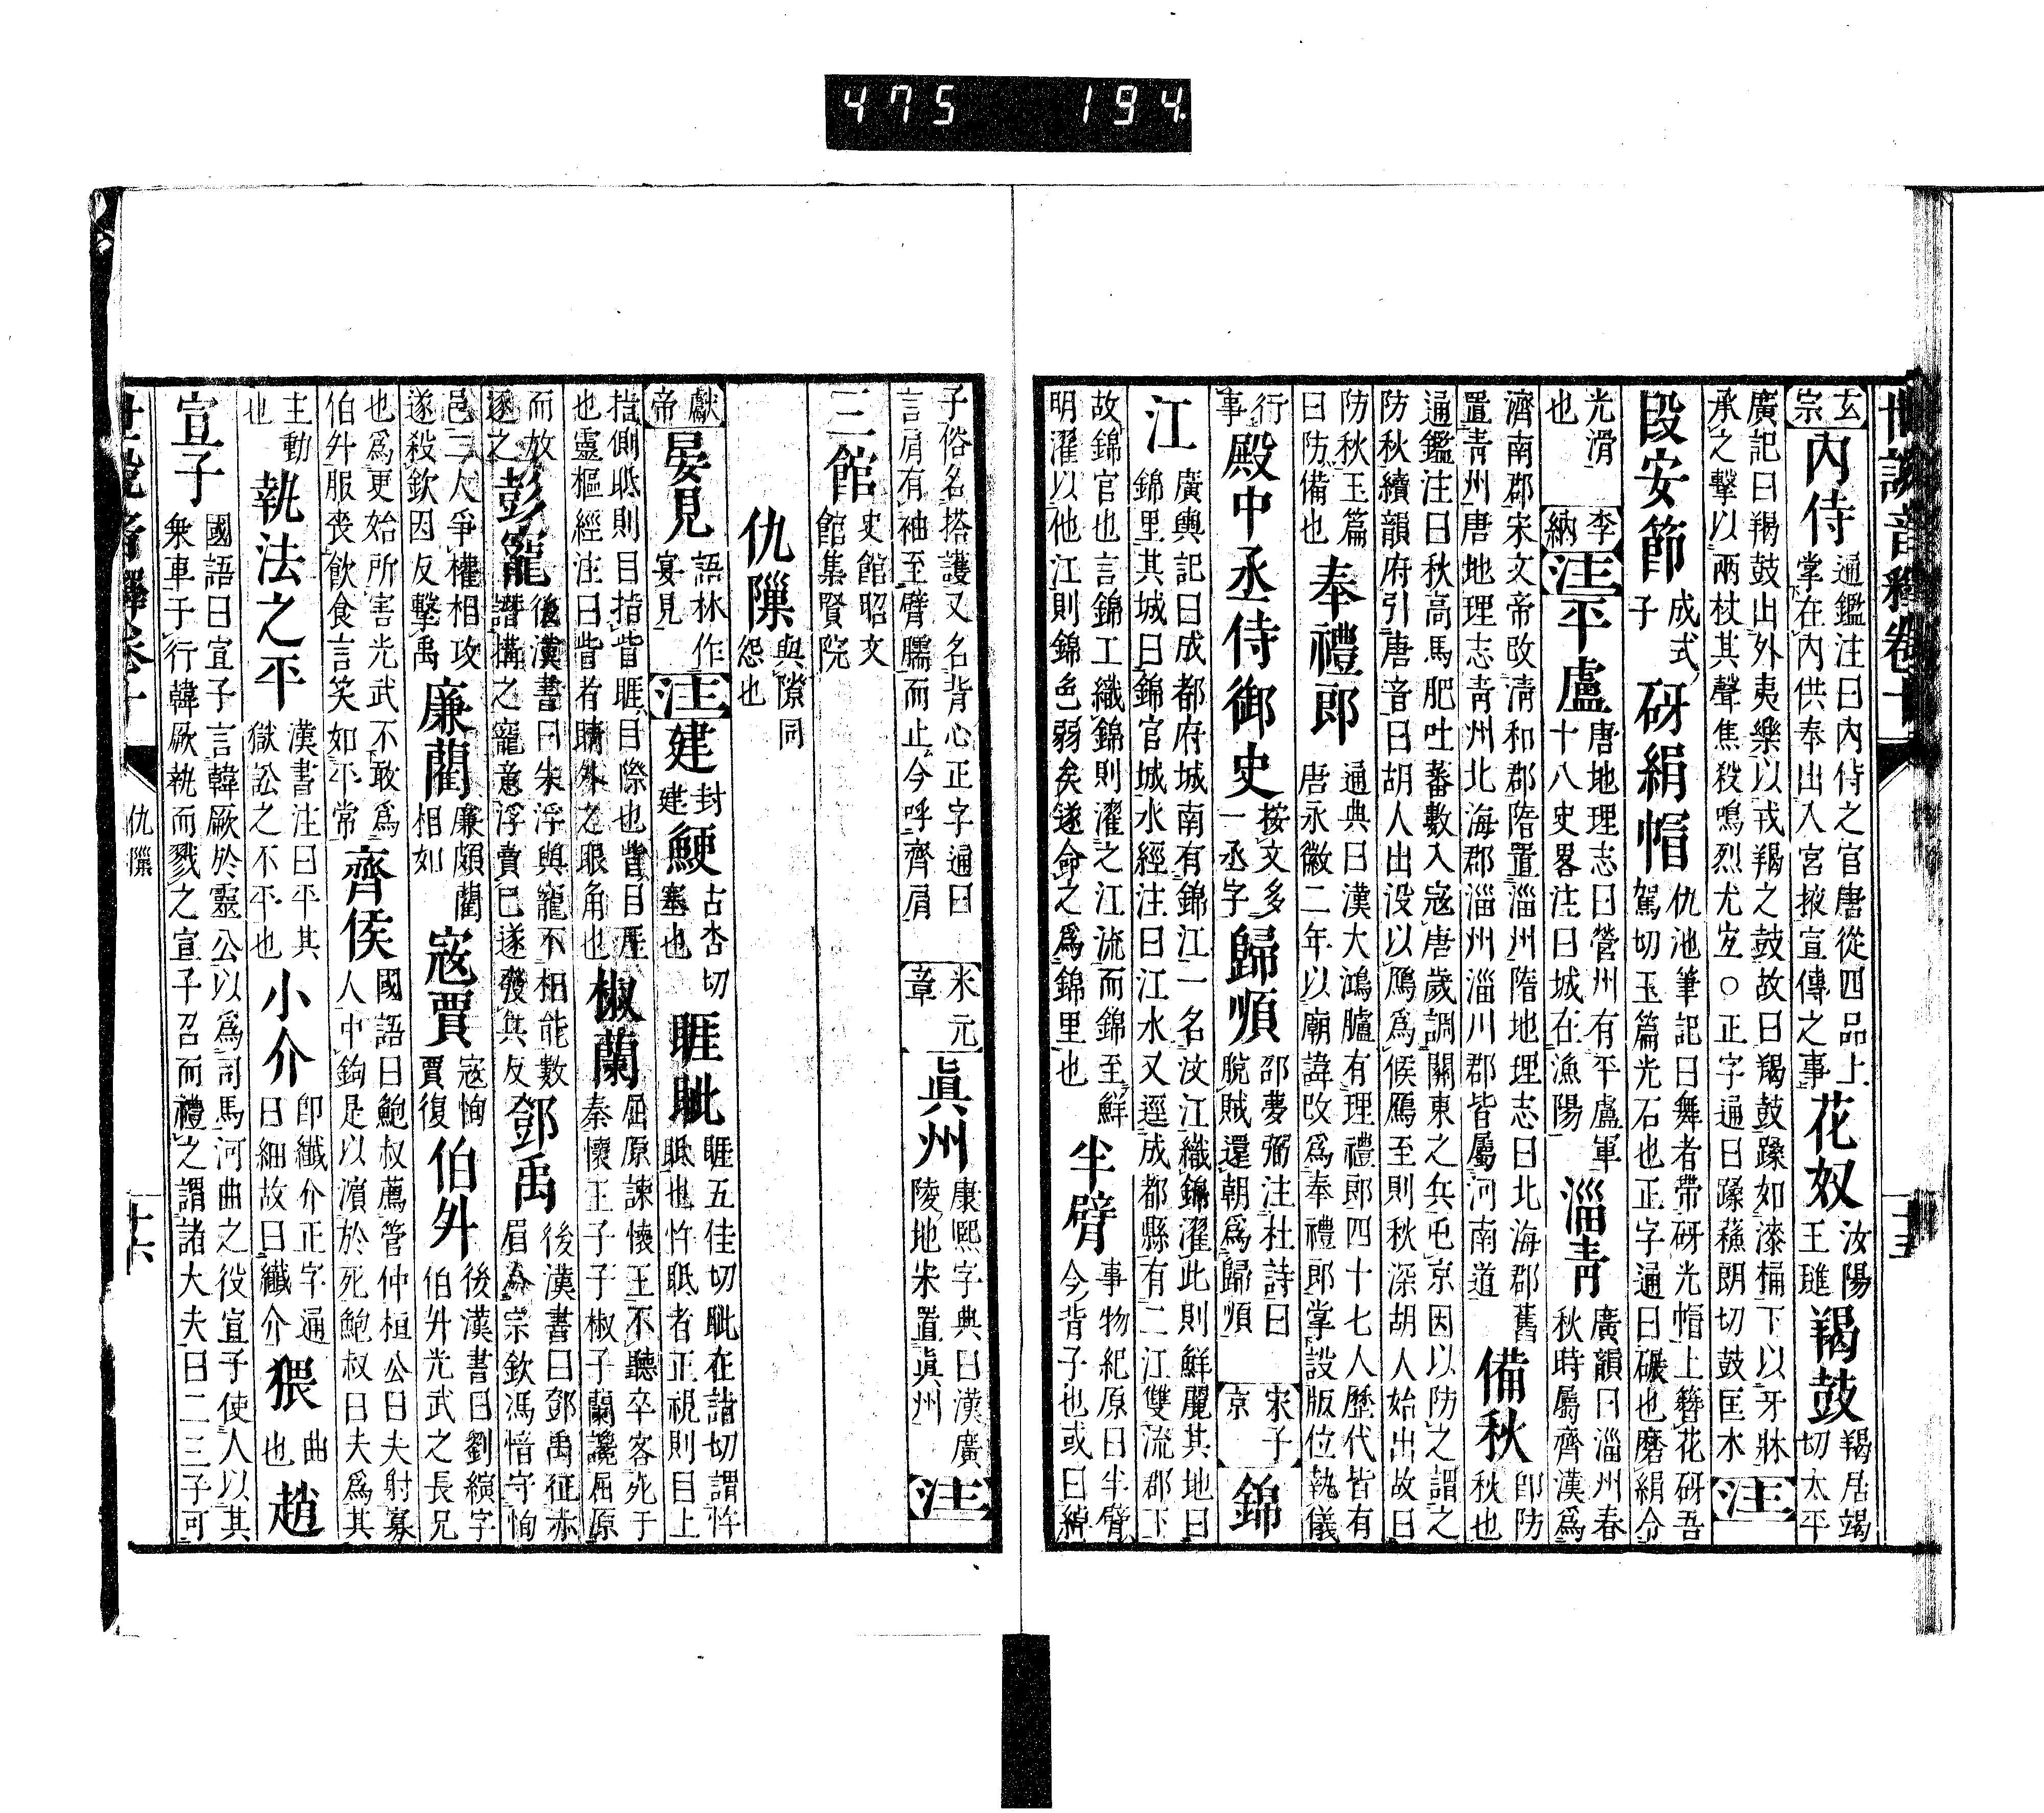 475 194
世說音釋卷十
玄宗 內侍 通鑑注曰內侍之官唐從四品上掌在內供奉出入宮掖宣傳之事 花奴 汝陽王璡 羯鼓 羯居竭切太平
廣記曰羯鼓出外夷樂以戎羯之鼓故曰羯鼓躁如漆桶下以牙牀承之擊以兩杖其聲焦殺鳴烈尤宜○正字通曰躁蘓朗切鼓匡木 注
段安節 成式子 砑絹帽 仇池筆記曰舞者帶砑光帽上簪花砑吾駕切玉篇光石也正字通曰碾也磨絹令
光滑也 李納 注 平盧 唐地理志曰營州有平盧軍十八史畧注曰城在漁陽 淄靑 廣韻曰淄州春秋時屬齊漢爲
濟南郡宋文帝改淸和郡隋置淄州隋地理志曰北海郡舊置靑州唐地理志靑州北海郡淄州淄川郡皆屬河南道 備秋 卽防秋也
通鑑注曰秋高馬肥吐蕃數入寇唐歲調關東之兵屯京因以防之謂之防秋續韻府引唐音曰胡人出没以鴈爲候鴈至則秋深胡人始出故曰
防秋玉篇曰防備也 奉禮郎 通典曰漢大鴻臚有理禮郎四十七人歷代皆有唐永徽二年以廟諱改爲奉禮郎掌設版位執儀
行事 殿中丞侍御史 按文多一丞字 歸順 邵夢弼注杜詩曰脫賊還朝爲歸順 宋子京 錦
江 廣輿記曰成都府城南有錦江一名汶江織錦濯此則鮮麗其地曰錦里其城曰錦官城水經注曰江水又逕成都縣有二江雙流郡下
故錦官也言錦工織錦則濯之江流而錦至鮮明濯以他江則錦色弱矣遂命之爲錦里也 半臂 事物紀原曰半臂今背子也或曰綽
十五
子俗名搭護又名背心正字通曰言肩有袖至臂臑而止今呼齊肩 米元章 眞州 康熙字典曰漢廣陵地宋置眞州 注
三館 史館昭文館集賢院
仇隟 與隙同怨也
獻帝 晏見 語林作宴見 注 建 封建 鯁 古杏切塞也 睚眦 睚五佳切眦在詣切謂忤眡也忤眡者正視則目上
指側眡則目指眥睚目際也眥目厓也靈樞經注曰眥者睛外之眼角也 椒蘭 屈原諫懷王不聽卒客死于秦懷王子子椒子蘭讒屈原
而放逐之 彭寵 後漢書曰朱浮與寵不相能數譖搆之寵意浮賣己遂發兵反 鄧禹 後漢書曰鄧禹征赤眉令宗欽馮愔守栒
邑二人爭權相攻遂殺欽因反擊禹 廉藺 廉頗藺相如 寇賈 寇恂賈復 伯升 後漢書曰劉縯字伯升光武之長兄
也爲更始所害光武不敢爲伯升服喪飮食言笑如平常 齊侯 國語曰鮑叔薦管仲桓公曰夫射寡人中鉤是以濱於死鮑叔曰夫爲其
主動也 執法之平 漢書注曰平其獄訟之不平也 小介 卽纖介正字通曰細故曰纖介 猥 曲也 趙
宣子 國語曰宣子言韓厥於靈公以爲司馬河曲之役宣子使人以其乘車干行韓厥執而戮之宣子召而禮之謂諸大夫曰二三子可
世說音釋卷十
仇隟
十六